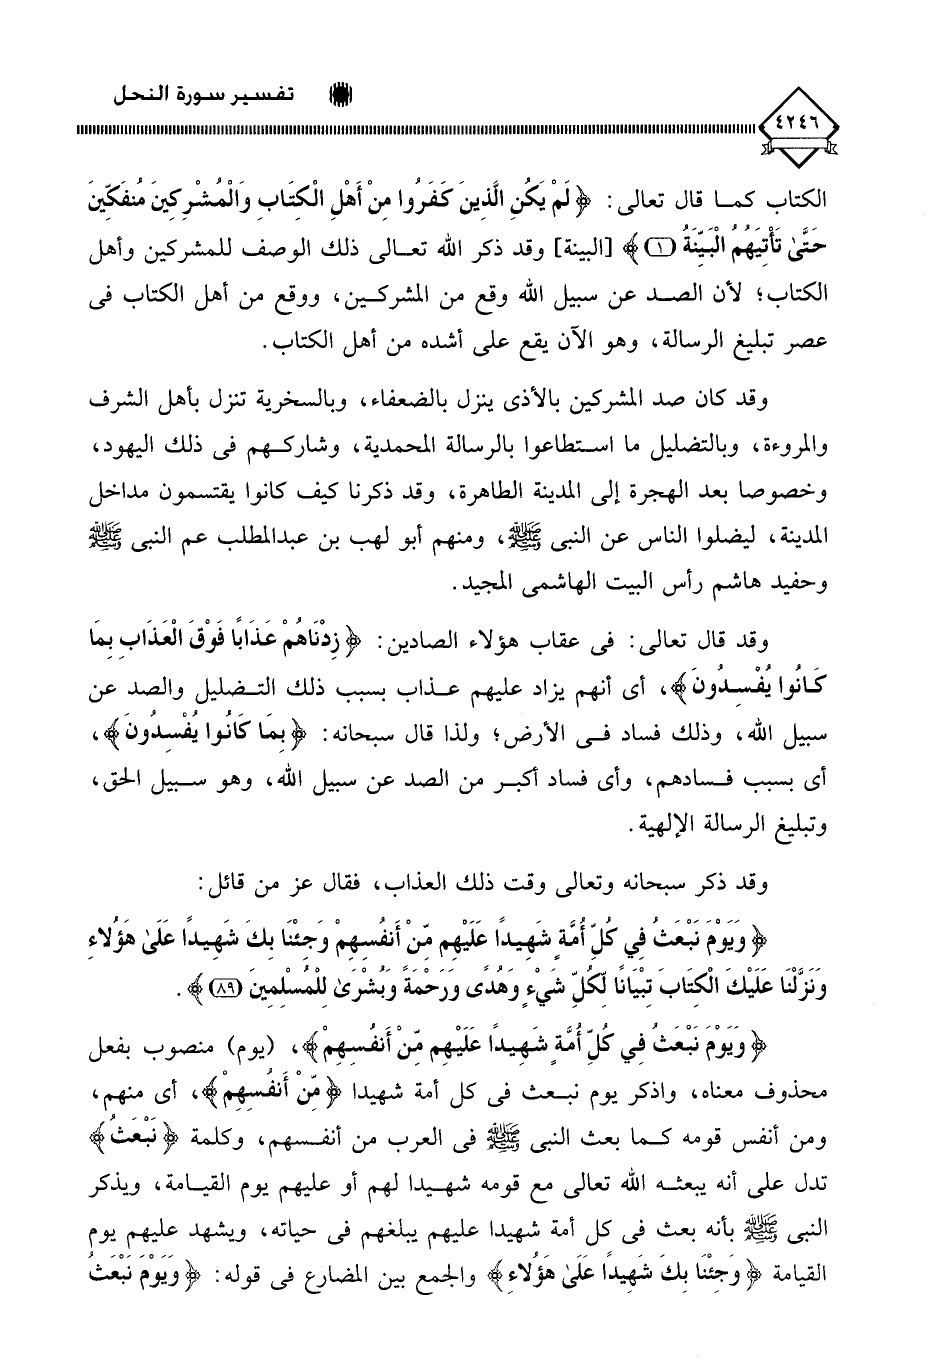 تفسير سورة النحل
٤٢٤٦
الكتاب كما قال تعالى: ﴿ لَمْ يَكُنِ الَّذِينَ كَفَرُوا مِنْ أَهْلِ الْكِتَابِ وَالْمُشْرِكِينَ مُنفَكِّينَ
حَتَّىٰ تَأْتِيَهُمُ الْبَيِّنَةُ (١) ﴾ [البينة] وقد ذكر الله تعالى ذلك الوصف للمشركين وأهل
الكتاب؛ لأن الصد عن سبيل الله وقع من المشركين، ووقع من أهل الكتاب فى
عصر تبليغ الرسالة، وهو الآن يقع على أشده من أهل الكتاب.
وقد كان صد المشركين بالأذى ينزل بالضعفاء، وبالسخرية تنزل بأهل الشرف
والمروءة، وبالتضليل ما استطاعوا بالرسالة المحمدية، وشاركهم فى ذلك اليهود،
وخصوصا بعد الهجرة إلى المدينة الطاهرة، وقد ذكرنا كيف كانوا يقتسمون مداخل
المدينة، ليضلوا الناس عن النبى ﷺ، ومنهم أبو لهب بن عبدالمطلب عم النبى ﷺ
وحفيد هاشم رأس البيت الهاشمى المجيد.
وقد قال تعالى: فى عقاب هؤلاء الصادين: ﴿ زِدْنَاهُمْ عَذَابًا فَوْقَ الْعَذَابِ بِمَا
كَانُوا يُفْسِدُونَ ﴾، أى أنهم يزاد عليهم عذاب بسبب ذلك التضليل والصد عن
سبيل الله، وذلك فساد فى الأرض؛ ولذا قال سبحانه: ﴿ بِمَا كَانُوا يُفْسِدُونَ ﴾،
أى بسبب فسادهم، وأى فساد أكبر من الصد عن سبيل الله، وهو سبيل الحق،
وتبليغ الرسالة الإلهية.
وقد ذكر سبحانه وتعالى وقت ذلك العذاب، فقال عز من قائل:
﴿ وَيَوْمَ نَبْعَثُ فِي كُلِّ أُمَّةٍ شَهِيدًا عَلَيْهِم مِّنْ أَنفُسِهِمْ وَجِئْنَا بِكَ شَهِيدًا عَلَىٰ هَؤُلَاءِ
وَنَزَّلْنَا عَلَيْكَ الْكِتَابَ تِبْيَانًا لِّكُلِّ شَيْءٍ وَهُدًى وَرَحْمَةً وَبُشْرَىٰ لِلْمُسْلِمِينَ (٨٩) ﴾.
﴿ وَيَوْمَ نَبْعَثُ فِي كُلِّ أُمَّةٍ شَهِيدًا عَلَيْهِم مِّنْ أَنفُسِهِمْ ﴾، (يوم) منصوب بفعل
محذوف معناه، واذكر يوم نبعث فى كل أمة شهيدا ﴿ مِّنْ أَنفُسِهِمْ ﴾، أى منهم،
ومن أنفس قومه كما بعث النبى ﷺ فى العرب من أنفسهم، وكلمة ﴿ نَبْعَثُ ﴾
تدل على أنه يبعثه الله تعالى مع قومه شهيدا لهم أو عليهم يوم القيامة، ويذكر
النبى ﷺ بأنه بعث فى كل أمة شهيدا عليهم يبلغهم فى حياته، ويشهد عليهم يوم
القيامة ﴿ وَجِئْنَا بِكَ شَهِيدًا عَلَىٰ هَؤُلَاءِ ﴾ والجمع بين المضارع فى قوله: ﴿ وَيَوْمَ نَبْعَثُ